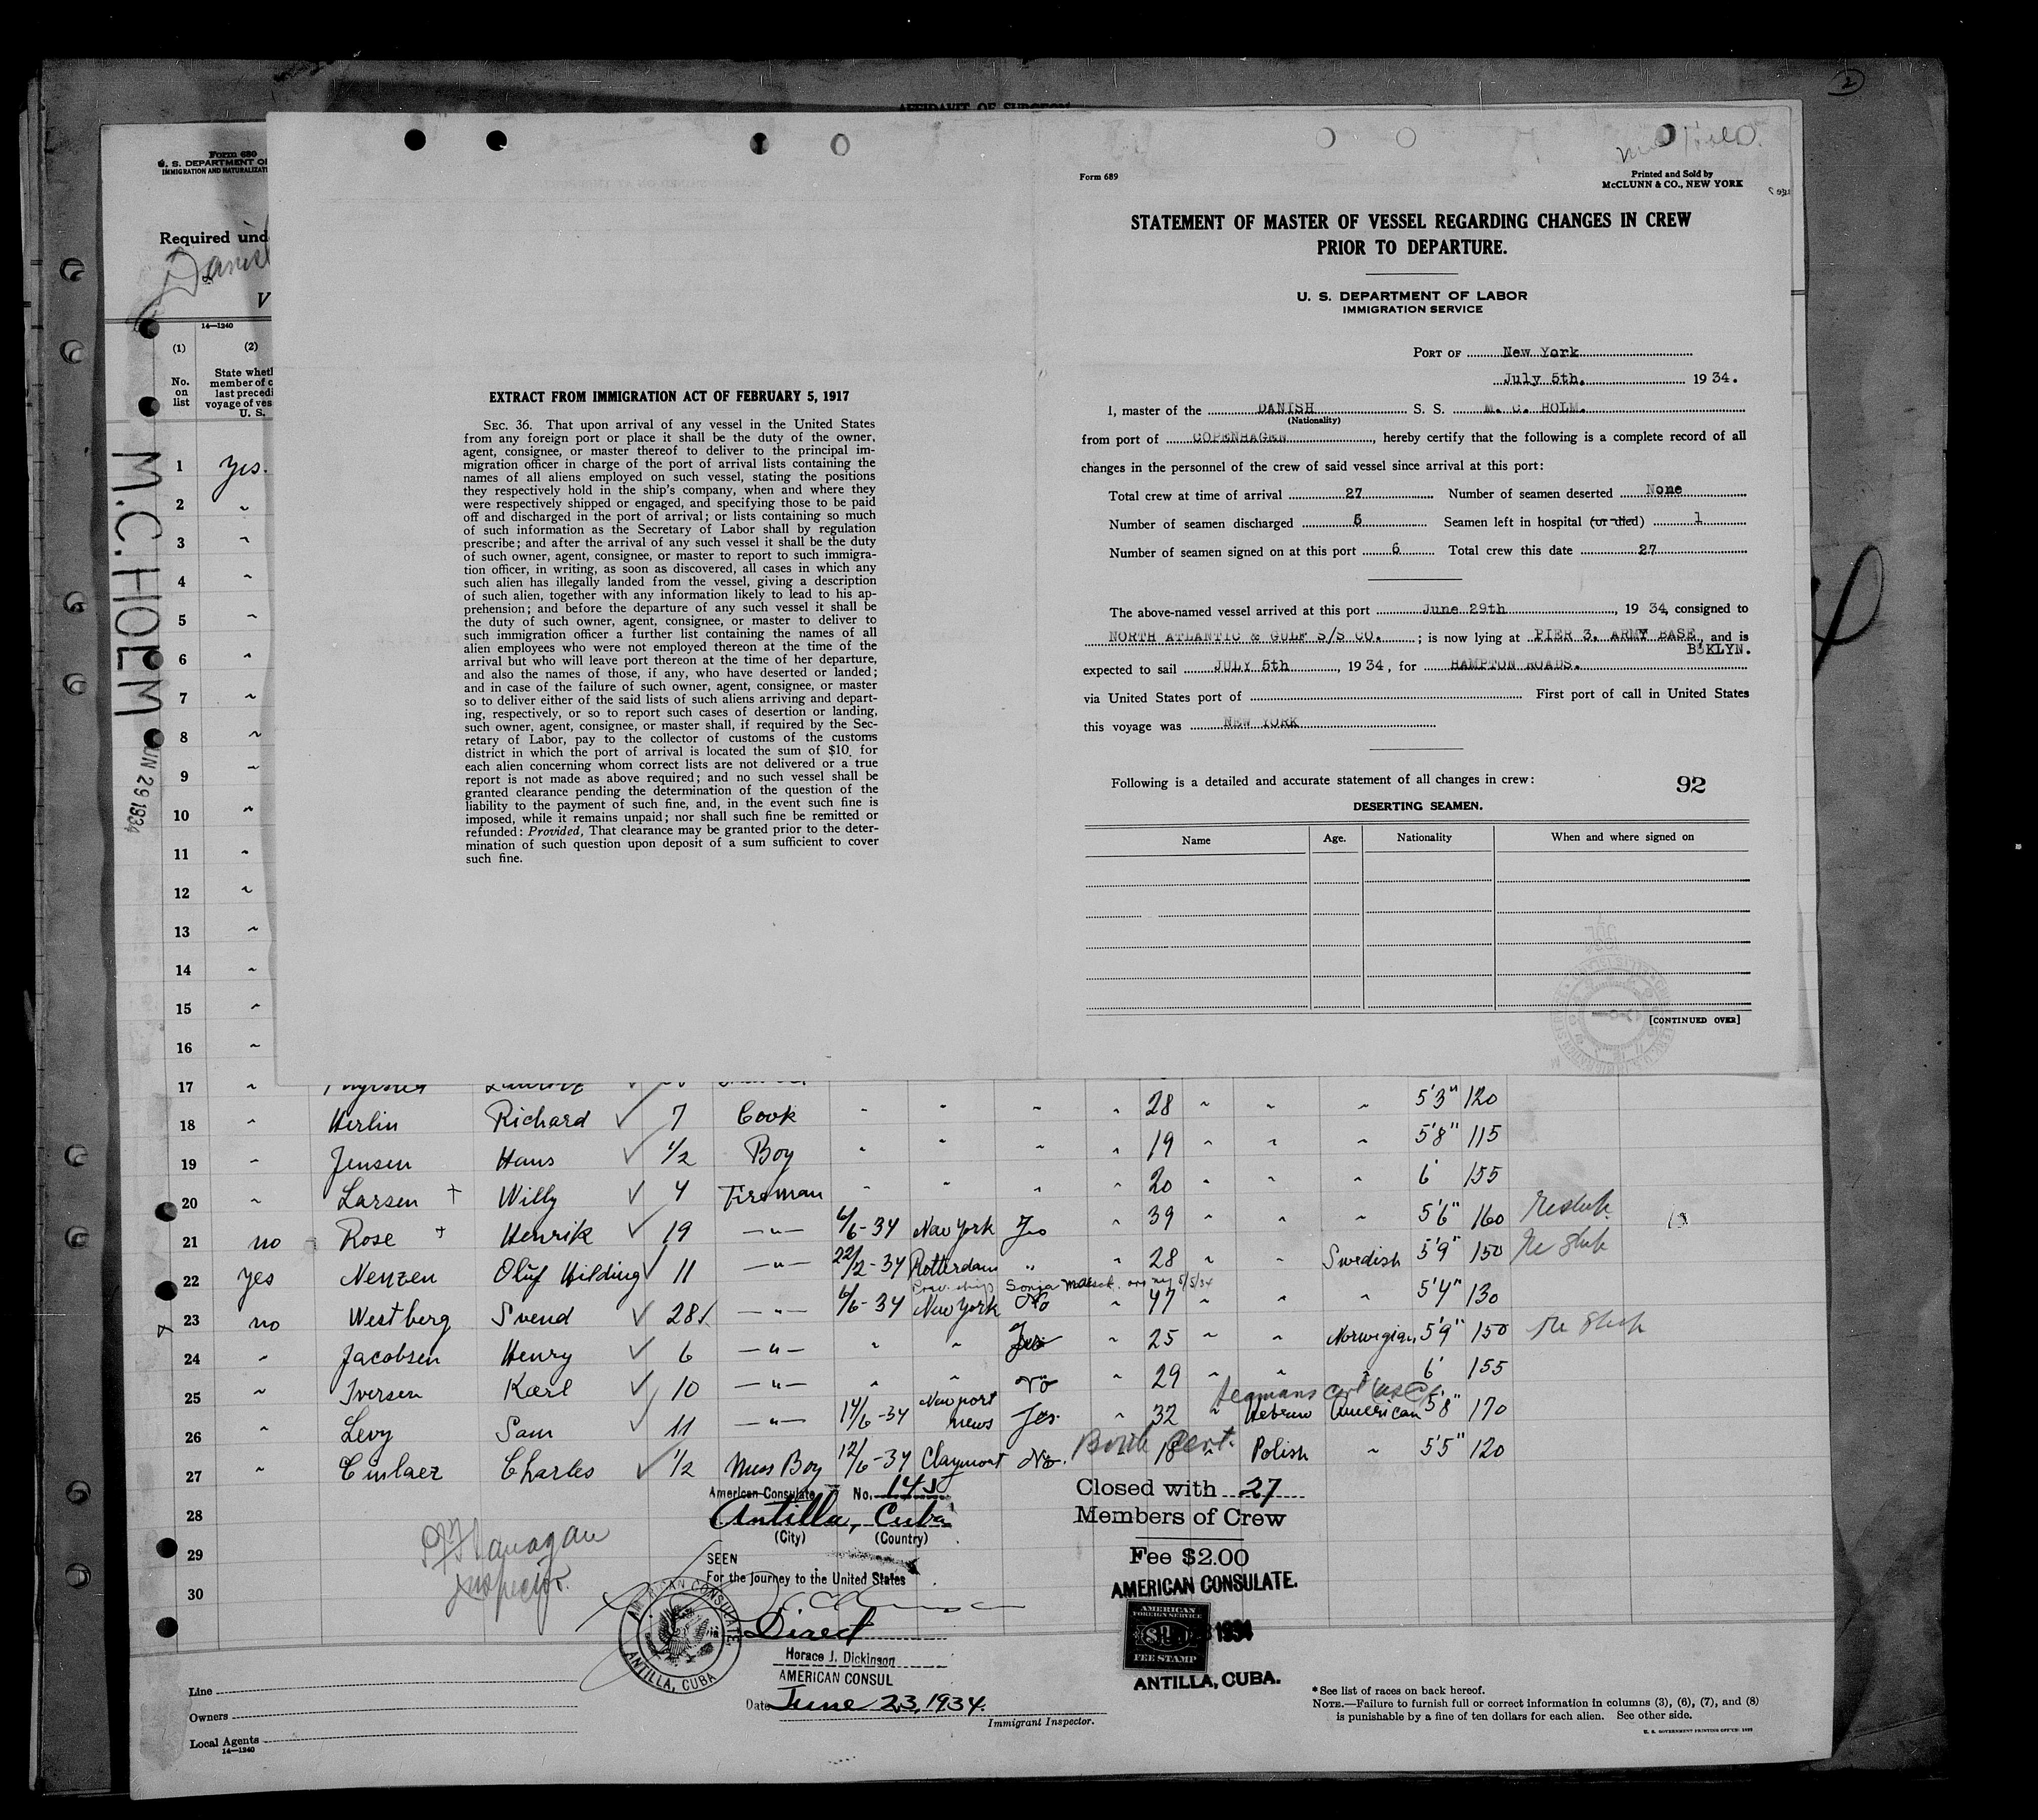 2
AFFIDAVIT OF SURGEON
Form 680
U. S. DEPARTMENT OF
IMMIGRATION AND NATURALIZAT
Required und
Danish
V
14—1240
(1)
No.
on
list
(2)
State whet
member of c
last precedi
voyage of ves
U. S.
M.C. HOLM
JUN 29 1934
EXTRACT FROM IMMIGRATION ACT OF FEBRUARY 5, 1917
SEC. 36. That upon arrival of any vessel in the United States
from any foreign port or place it shall be the duty of the owner,
agent, consignee, or master thereof to deliver to the principal im-
migration officer in charge of the port of arrival lists containing the
names of all aliens employed on such vessel, stating the positions
they respectively hold in the ship's company, when and where they
were respectively shipped or engaged, and specifying those to be paid
off and discharged in the port of arrival; or lists containing so much
of such information as the Secretary of Labor shall by regulation
prescribe; and after the arrival of any such vessel it shall be the duty
of such owner, agent, consignee, or master to report to such immigra-
tion officer, in writing, as soon as discovered, all cases in which any
such alien has illegally landed from the vessel, giving a description
of such alien, together with any information likely to lead to his ap-
prehension; and before the departure of any such vessel it shall be
the duty of such owner, agent, consignee, or master to deliver to
such immigration officer a further list containing the names of all
alien employees who were not employed thereon at the time of the
arrival but who will leave port thereon at the time of her departure,
and also the names of those, if any, who have deserted or landed;
and in case of the failure of such owner, agent, consignee, or master
so to deliver either of the said lists of such aliens arriving and depart-
ing, respectively, or so to report such cases of desertion or landing,
such owner, agent, consignee, or master shall, if required by the Sec-
retary of Labor, pay to the collector of customs of the customs
district in which the port of arrival is located the sum of $10 for
each alien concerning whom correct lists are not delivered or a true
report is not made as above required; and no such vessel shall be
granted clearance pending the determination of the question of the
liability to the payment of such fine, and, in the event such fine is
imposed, while it remains unpaid; nor shall such fine be remitted or
refunded: Provided, That clearance may be granted prior to the deter-
mination of such question upon deposit of a sum sufficient to cover
such fine.
Form 689
Printed and Sold by
McCLUNN & CO., NEW YORK
STATEMENT OF MASTER OF VESSEL REGARDING CHANGES IN CREW
PRIOR TO DEPARTURE.
U. S. DEPARTMENT OF LABOR
IMMIGRATION SERVICE
PORT OF New York
July 5th. 1934.
I, master of the DANISH S. S. M. C. HOLM.
(Nationality)
from port of COPENHAGEN, hereby certify that the following is a complete record of all
changes in the personnel of the crew of said vessel since arrival at this port:
Total crew at time of arrival 27 Number of seamen deserted None
Number of seamen discharged 5 Seamen left in hospital (or died) 1
Number of seamen signed on at this port 6 Total crew this date 27
The above-named vessel arrived at this port June 29th, 1934, consigned to
NORTH ATLANTIC & GULF S/S CO.; is now lying at PIER 3, ARMY BASE, and is
BKLYN.
expected to sail JULY 5th, 1934, for HAMPTON ROADS.
via United States port of First port of call in United States
this voyage was NEW YORK
Following is a detailed and accurate statement of all changes in crew: 92
DESERTING SEAMEN.
Name Age. Nationality When and where signed on
[CONTINUED OVER]
1 yes.
2 "
3 "
4 "
5 "
6 "
7 "
8 "
9 "
10 "
11 "
12 "
13 "
14 "
15 "
16 "
17 "
18 " Herlin Richard ✓ 7 Cook " " " " 28 " " " 5'3" 120
19 " Jensen Hans ✓ 1/2 Boy " " " " 19 " " " 5'8" 115
20 " Larsen + Willy ✓ 4 Fireman " " " " 20 " " " 6' 155
21 no Rose + Henrik ✓ 19 —"— 6/6-34 New York Yes " 39 " " " 5'6" 160
22 yes Nenzen Oluf Hilding ✓ 11 —"— 22/2-34 Rotterdam " " 28 " " Swedish 5'9" 150
Prev. ship Sonja Maersk arr ny 5/5/34
23 no Westberg Svend ✓ 28 —"— 6/6-34 New York No " 47 " " " 5'4" 130
24 " Jacobsen Henry ✓ 6 —"— " " Yes " 25 " " Norwegian 5'9" 150
25 " Iversen Karl ✓ 10 —"— " " No " 29 " " " 6' 155
Seamans cert
26 " Levy Sam ✓ 11 —"— 14/6-34 Newport news Yes. " 32 " Hebrew American 5'8" 170
27 " Charles ✓ 1/2 Mess Boy 12/6-34 Claymont No. Birth Cert. 18 " Polish " 5'5" 120
28
29
30
Flanagan
Inspector.
American Consulate No. 145
Antilla, Cuba
(City) (Country)
SEEN
For the journey to the United States
via Direct
Horace J. Dickinson
AMERICAN CONSUL
Date June 23, 1934.
AMERICAN CONSULATE
ANTILLA, CUBA
Closed with 27
Members of Crew
Fee $2.00
AMERICAN CONSULATE.
AMERICAN
FOREIGN SERVICE
FEE STAMP
1934
ANTILLA, CUBA.
Line
Owners
Local Agents
14—1240
Immigrant Inspector.
*See list of races on back hereof.
NOTE.—Failure to furnish full or correct information in columns (3), (6), (7), and (8)
is punishable by a fine of ten dollars for each alien. See other side.
U. S. GOVERNMENT PRINTING OFFICE: 1933